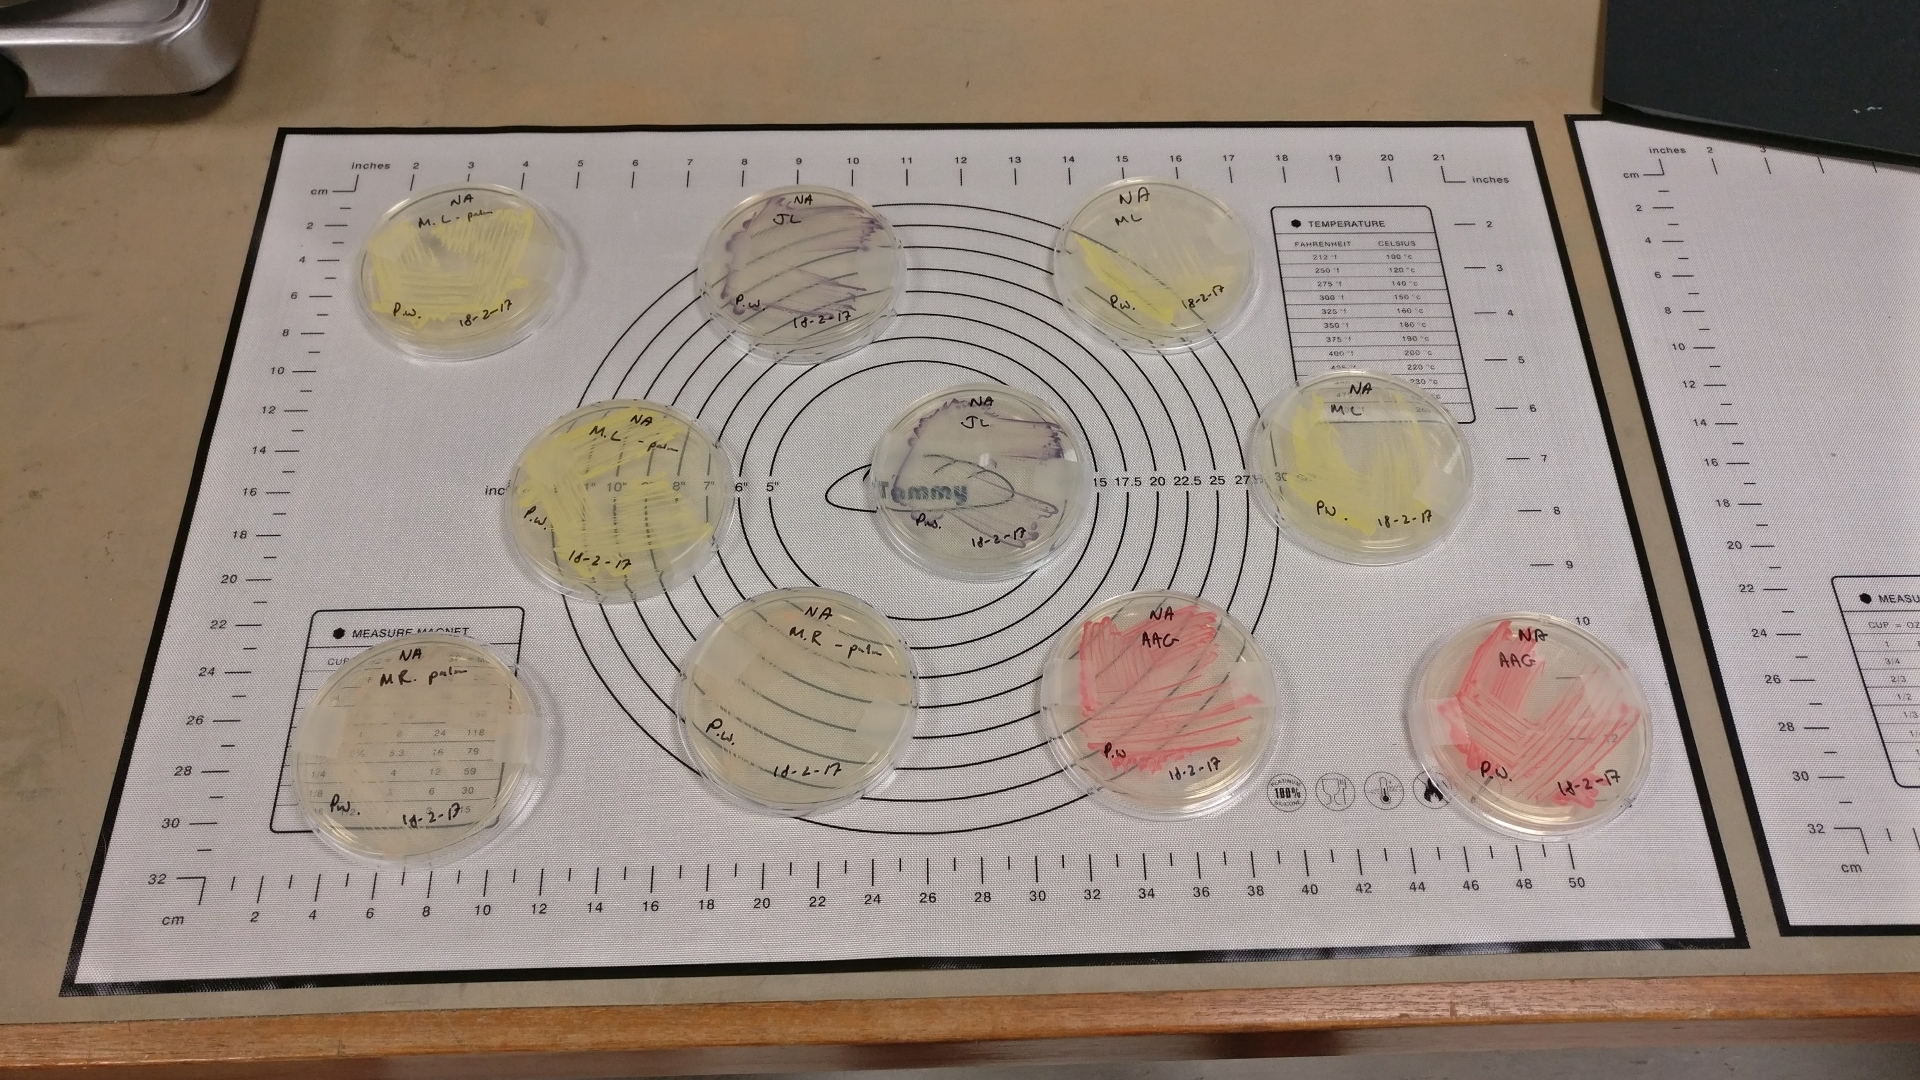 inches 2 3 4 5 6 7 8 9 10 11 12 13 14 15 16 17 18 19 20 21 inches
cm
2
4
6
8
10
12
14
16
18
20
22
24
26
28
30
32
cm
NA
M.L - palm
P.W. 18-2-17
NA
JL
P.W. 18-2-17
NA
ML
P.W. 18-2-17
TEMPERATURE
FAHRENHEIT CELSIUS
212 °f 100 °c
250 °f 120 °c
275 °f 140 °c
300 °f 150 °c
325 °f 160 °c
350 °f 180 °c
375 °f 190 °c
400 °f 200 °c
220 °c
230 °c
2
3
4
5
6
7
8
9
10
NA
M.L - palm
P.W.
18-2-17
10" 8" 7" 6" 5"
NA
JL
Tommy
P.W.
18-2-17
15 17.5 20 22.5 25
NA
ML
P.W. 18-2-17
MEASURE MAGNET
CUP
NA
MR. palm
4 8 24 118
5.3 16 79
1/4 4 12 59
1/8 6 30
P.W. 18-2-17
NA
M.R - palm
P.W.
18-2-17
NA
AAG
P.W. 18-2-17
PLATINUM
100%
SILICONE
NA
AAG
12
P.W. 18-2-17
2 4 6 8 10 12 14 16 18 20 22 24 26 28 30 32 34 36 38 40 42 44 46 48 50
inches 2 3
cm
2
4
6
8
10
12
14
16
18
20
22
24
26
28
30
32
cm
MEASU
CUP = OZ
1
3/4
2/3
1/2